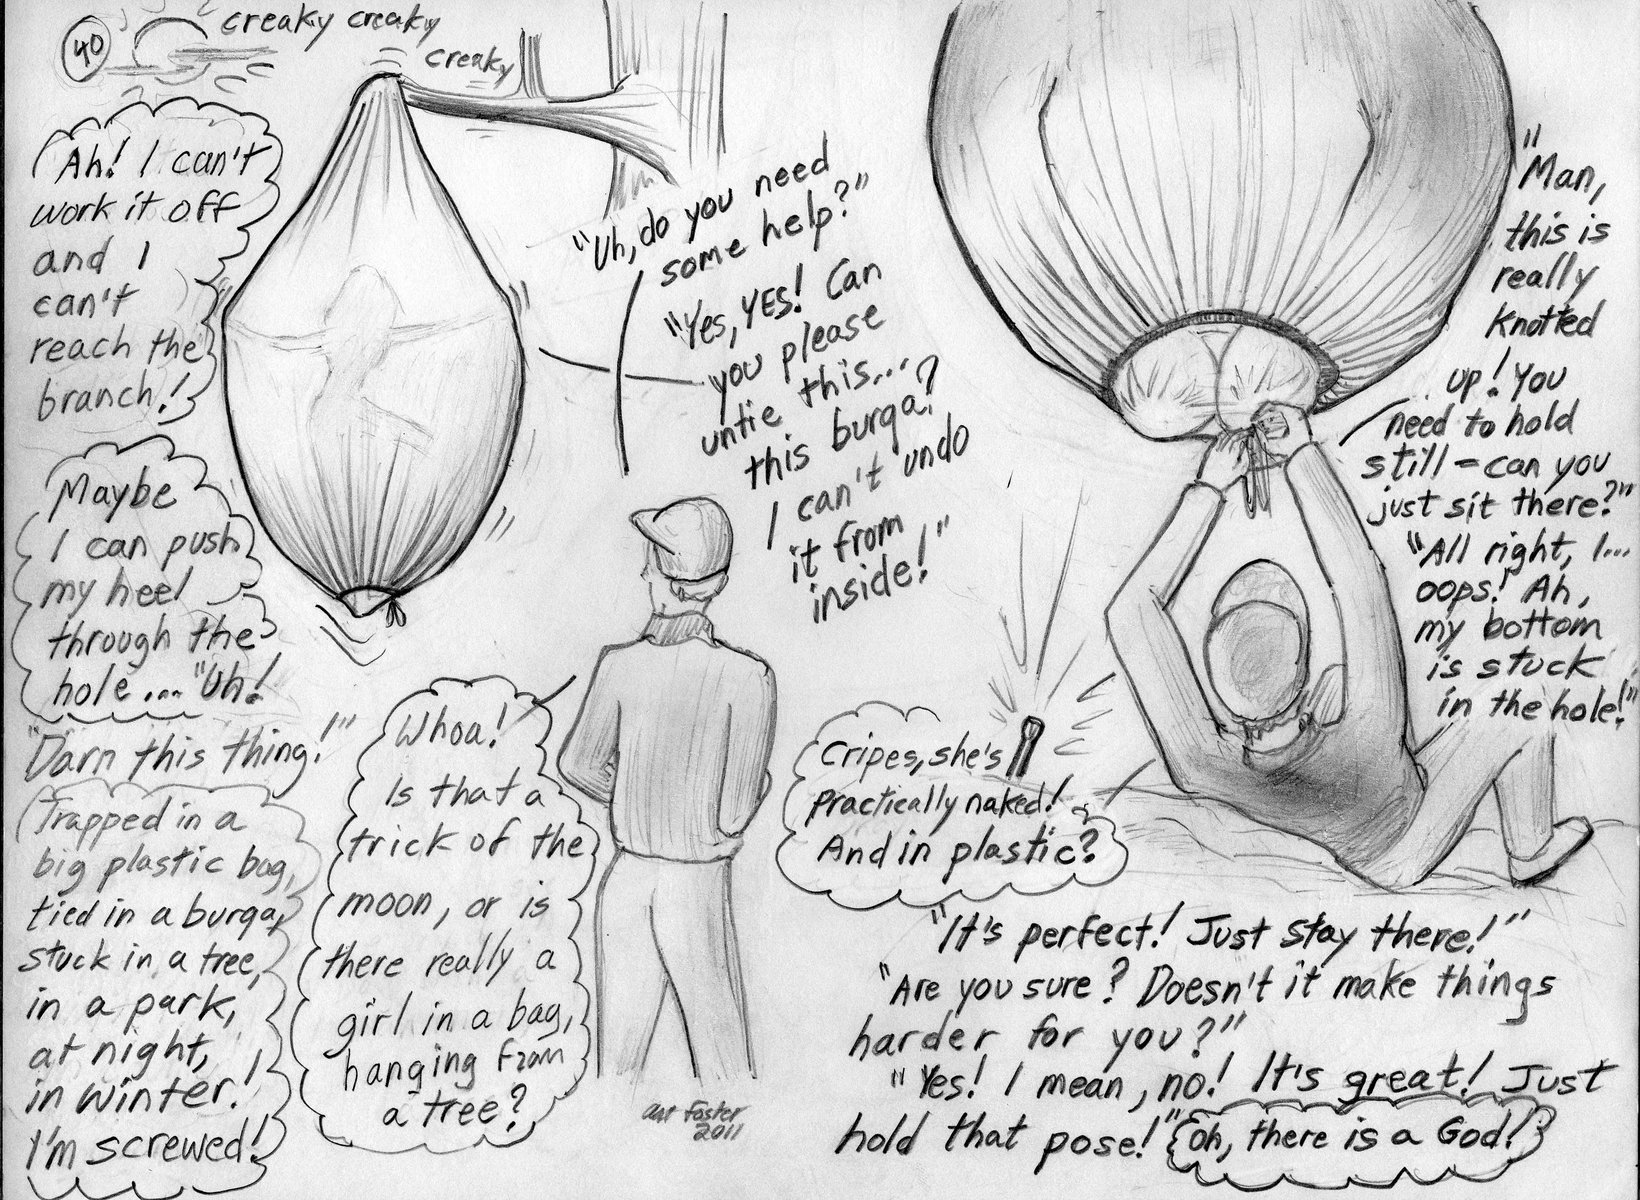 40
creaky creaky
creaky
Ah! I can't
work it off
and I
can't
reach the
branch!
Maybe
I can push
my heel
through the
hole... "Uh!
"Darn this thing!"
Trapped in a
big plastic bag,
tied in a burqa,
stuck in a tree,
in a park,
at night,
in winter!
I'm screwed!
"Uh, do you need
some help?"
"Yes, YES! Can
you please
untie this...
this burqa?
I can't undo
it from
inside!"
Whoa!
Is that a
trick of the
moon, or is
there really a
girl in a bag,
hanging from
a tree?
Art Foster
2011
"Man,
this is
really
knotted
up! You
need to hold
still - can you
just sit there?"
"All right, I...
oops! Ah,
my bottom
is stuck
in the hole!"
Cripes, she's
practically naked!
And in plastic?
"It's perfect! Just stay there!"
"Are you sure? Doesn't it make things
harder for you?"
"Yes! I mean, no! It's great! Just
hold that pose!" Oh, there is a God!